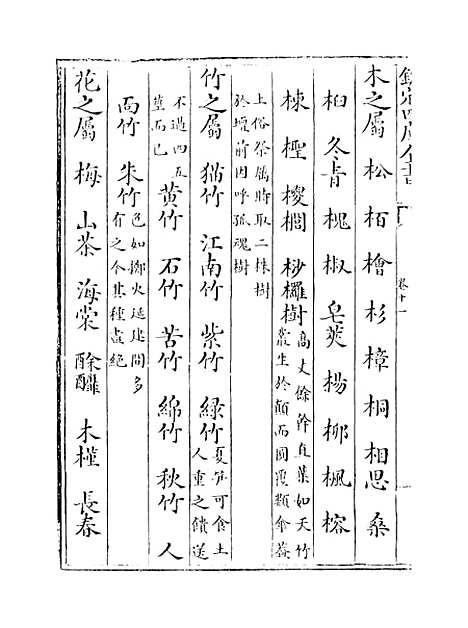 欽定四庫全書
卷十一
木之屬 松 栢 檜 杉 樟 桐 相思 桑
桕 冬青 槐 椒 皂莢 楊 柳 楓 榕
楝 檉 椶櫚 桫欏樹 高丈餘幹直葉如天竹
叢生於顛而圓覆類傘葢
土俗祭厲時取二株樹
於壇前因呼孤魂樹
竹之屬 猫竹 江南竹 紫竹 綠竹 夏笋可食土
人重之饋送
不過四五
莖而已 黄竹 石竹 苦竹 綿竹 秋竹 人
面竹 朱竹 色如擲火延建間多
有之今其種盡絶
花之屬 梅 山茶 海棠 酴醿 木槿 長春